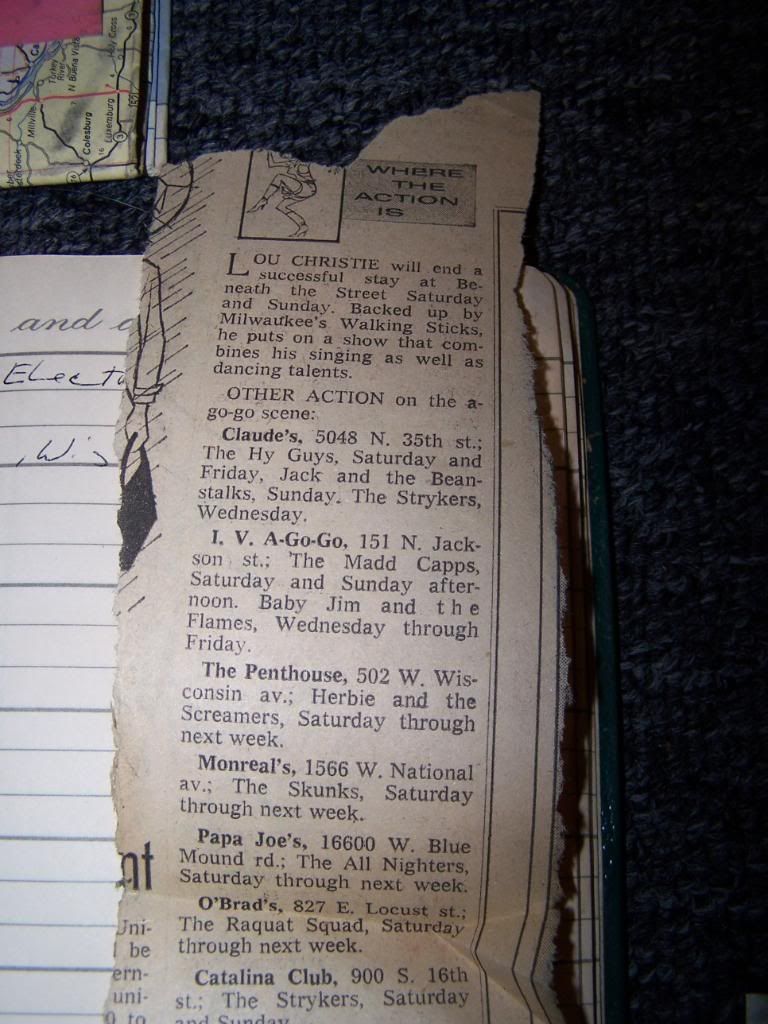 Holy Cross
Turkey River
N Buena Vista
Millville
Luxemburg
Colesburg
WHERE
THE
ACTION
IS
LOU CHRISTIE will end a
successful stay at Be-
neath the Street Saturday
and Sunday. Backed up by
Milwaukee's Walking Sticks,
he puts on a show that com-
bines his singing as well as
dancing talents.
OTHER ACTION on the a-
go-go scene:
Claude's, 5048 N. 35th st.;
The Hy Guys, Saturday and
Friday, Jack and the Bean-
stalks, Sunday. The Strykers,
Wednesday.
I. V. A-Go-Go, 151 N. Jack-
son st.; The Madd Capps,
Saturday and Sunday after-
noon. Baby Jim and the
Flames, Wednesday through
Friday.
The Penthouse, 502 W. Wis-
consin av.; Herbie and the
Screamers, Saturday through
next week.
Monreal's, 1566 W. National
av.; The Skunks, Saturday
through next week.
Papa Joe's, 16600 W. Blue
Mound rd.; The All Nighters,
Saturday through next week.
O'Brad's, 827 E. Locust st.;
The Raquat Squad, Saturday
through next week.
Catalina Club, 900 S. 16th
st.; The Strykers, Saturday
and Sunday.
and
Elect
, Wis
nt
Uni-
be
ern-
uni-
to